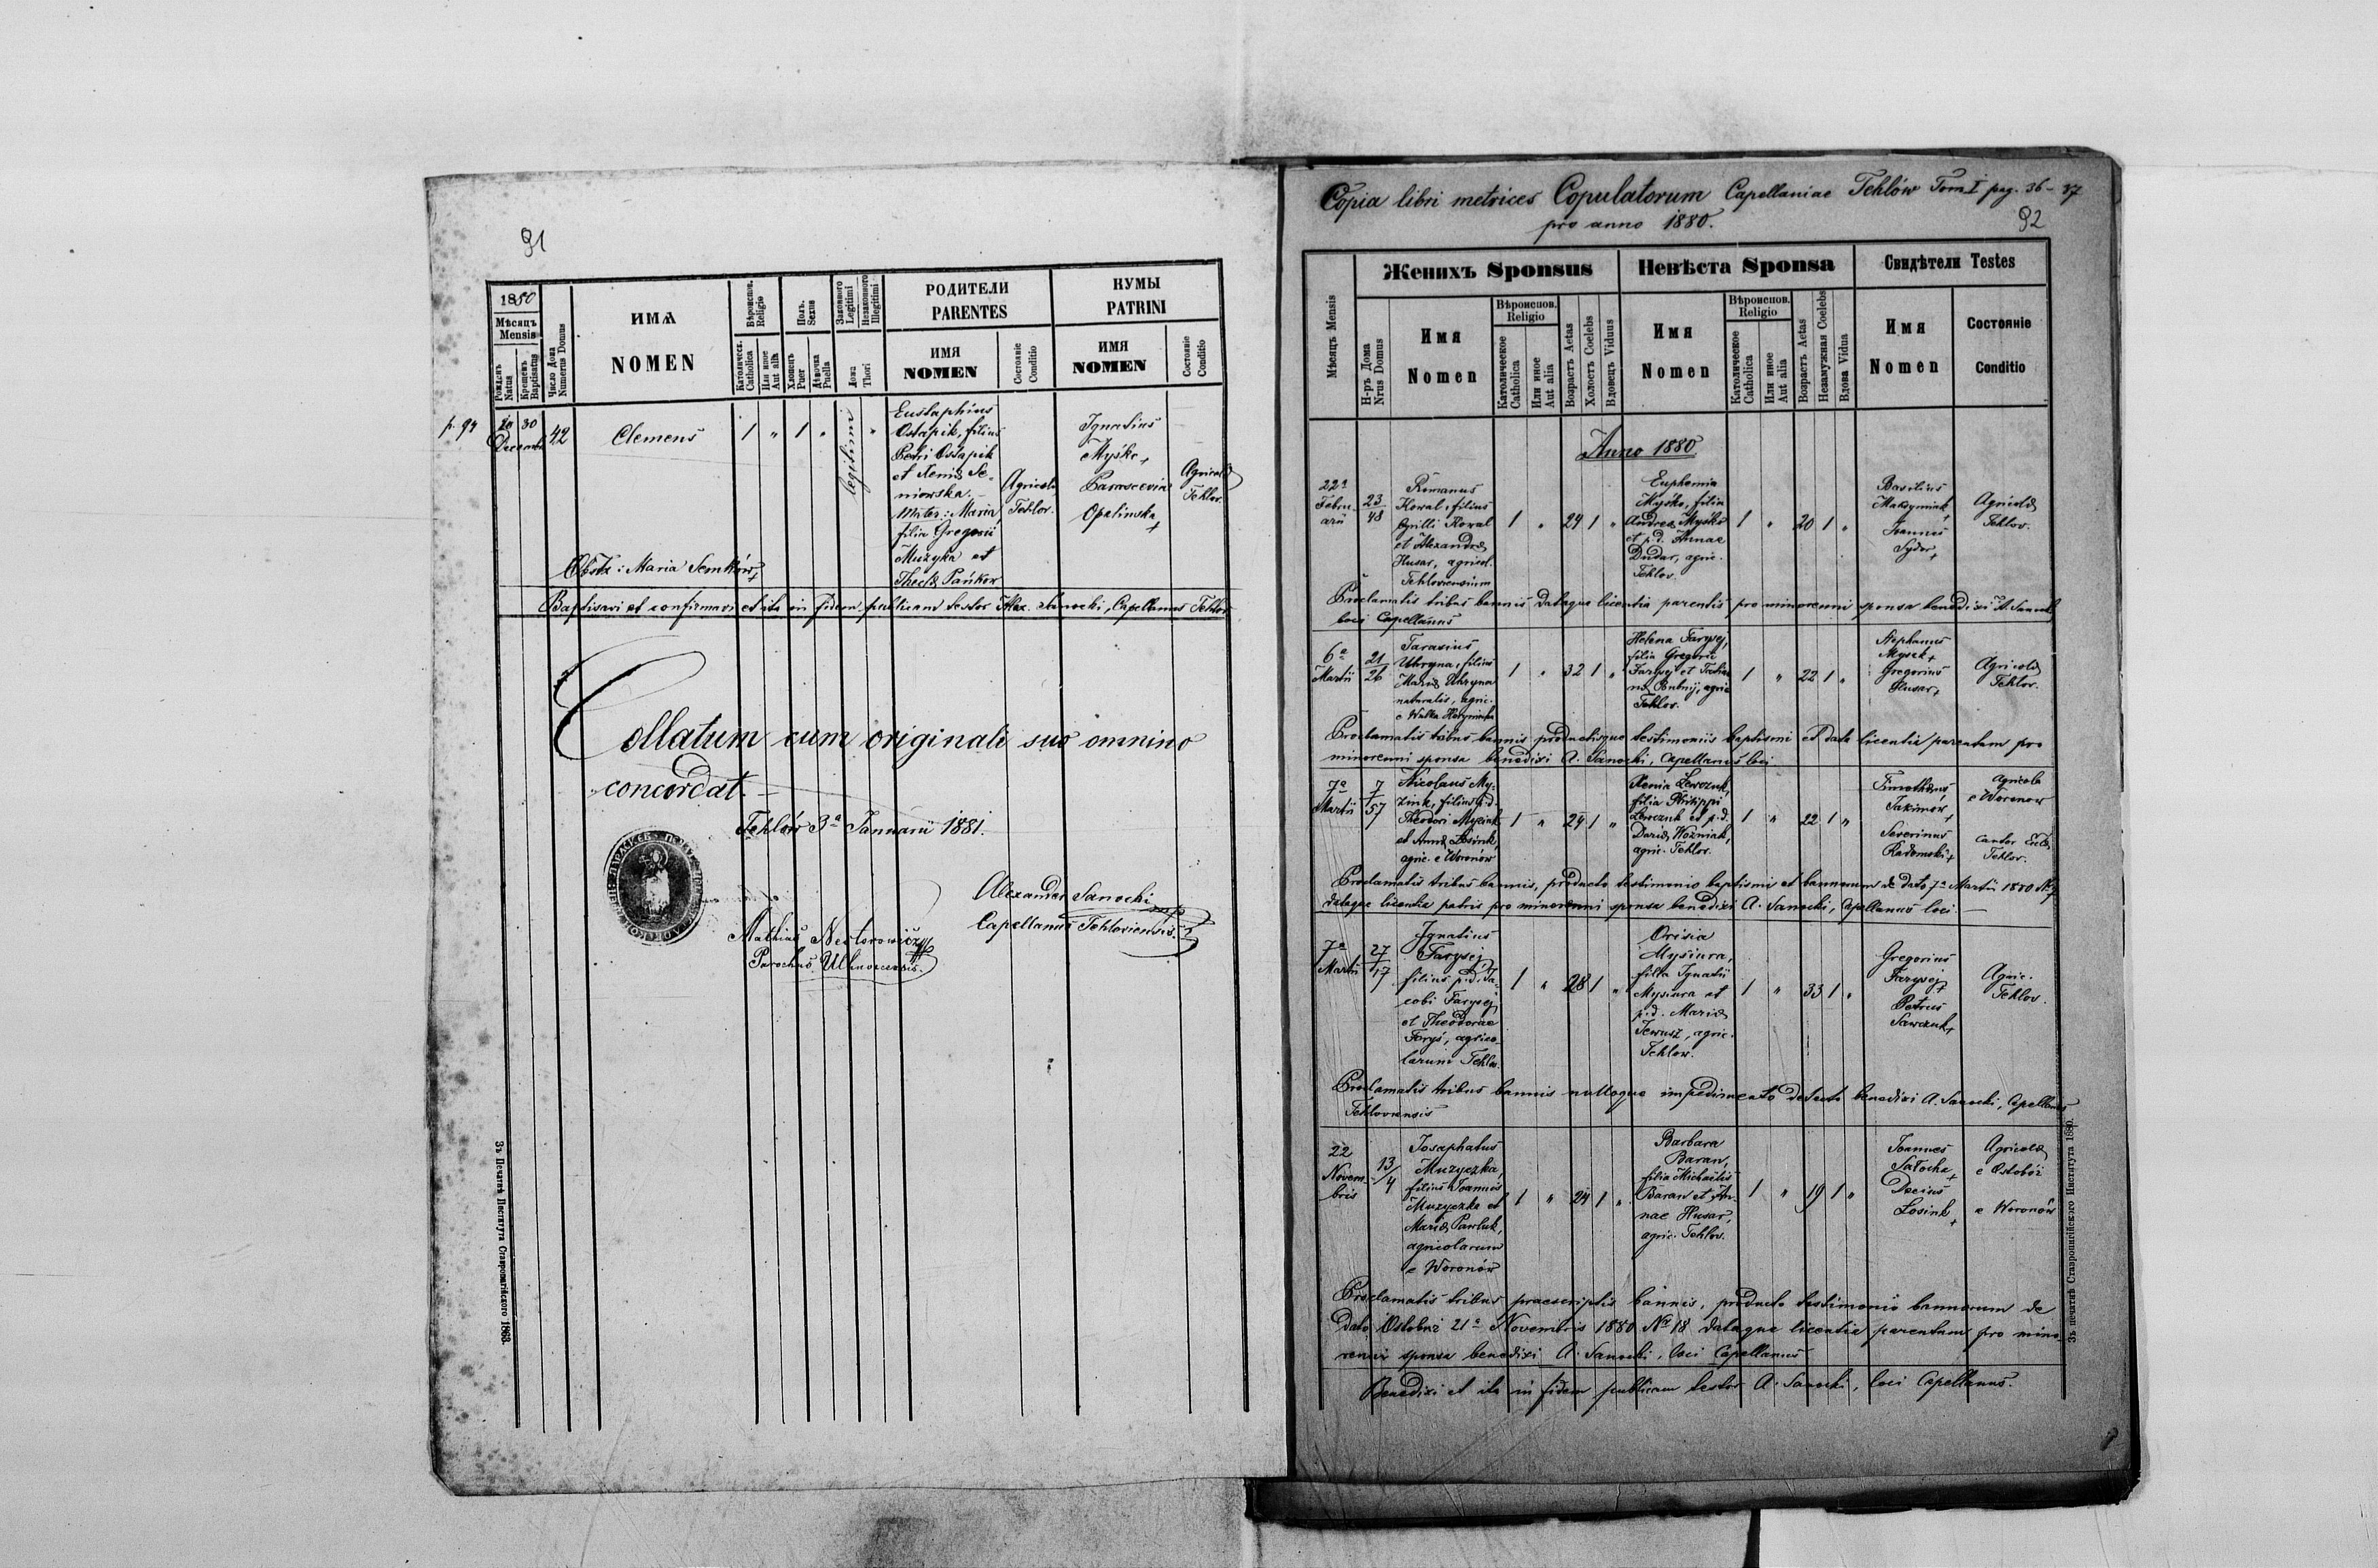 91
1880
Мѣсяцъ
Mensis
Рожденъ
Natus
Крещенъ
Baptisatus
Число Дома
Numerus Domus
ИМЯ
NOMEN
Вѣроиспов.
Religio
Католическ.
Catholica
Или иное
Aut alia
Полъ.
Sexus
Хлопецъ
Puer
Дѣвочка
Puella
Законного
Legitimi
Незаконного
Illegitimi
Ложа
Thori
РОДИТЕЛИ
PARENTES
ИМЯ
NOMEN
Состояніе
Conditio
КУМЫ
PATRINI
ИМЯ
NOMEN
Состояніе
Conditio
p. 94
30
Decemb
42
Clemens
1 " 1 "
legitimi
"
Eustaphius
Ostapik, filius
Petri Ostapik
et Xeniæ Se-
niowska.
Mater: Maria
filia Gregorii
Muzyka et
Theclæ Pańkow
Agricolæ
Tehlov.
Ignatius
Myśko +
Parascevia
Opalinska
+
Agricolæ
Tehlov.
Obstz: Maria Semków +
Baptisavi et confirmavi et ita in fidem publicam testor Alex. Sanocki, Capellanus Tehlov
Collatum cum originali suo omnino
concordat.
Tehlów 3ª Januarii 1881.
Alexander Sanocki
Capellanus Tehloviensis.
Mathias Nestorowicz
Parochus Uhnoviensis.
Зъ Печатнѣ Института Ставропигійского 1863.
Copia libri metrices Copulatorum Capellaniae Tehlów Tom. I pag. 36-37
pro anno 1880.
92
Мѣсяцъ Mensis
Женихъ Sponsus
Н-ръ Дома
Nrus Domus
Имя
Nomen
Вѣроиспов.
Religio
Католическое
Catholica
Или иное
Aut alia
Возрастъ Aetas
Холостъ Coelebs
Вдовецъ Viduus
Невѣста Sponsa
Имя
Nomen
Вѣроиспов.
Religio
Католическое
Catholica
Или иное
Aut alia
Возрастъ Aetas
Незамужная Coelebs
Вдова Vidua
Свидѣтели Testes
Имя
Nomen
Состояніе
Conditio
Anno 1880
22ª
Febru-
arii
23
48
Romanus
Kowal, filius
Cyrilli Kowal
et Alexandræ
Husar, agricol.
Tehloviensium
1 " 24 1 "
Euphemia
Myśko, filia
Andreæ Myśko
et p.d. Annae
Dudar, agric.
Tehlov.
1 " 20 1 "
Basilius
Maksymiuk
+
Joannes
Sydor +
Agricolæ
Tehlov.
Proclamatis tribus bannis dataque licentia parentis pro minorenni sponsa benedixi A. Sanocki
loci Capellanus
6ª
Martii
21
26
Tarasius
Uhryna, filius
Mariæ Uhryna
naturalis, agric.
1 " 32 1 "
Helena Farysej,
filia Gregorii
Farysej et
agric
Tehlov.
1 " 22 1 "
Stephanus
+
Gregorius
Husar +
Agricolæ
Tehlov.
Proclamatis tribus bannis productisque testimoniis baptismi et data licentia parentum pro
minorenni sponsa benedixi A. Sanocki, Capellanus loci
7ª
Martii
7
57
Nicolaus My-
ziuk, filius p.d.
Theodori Myziuk
et Annæ Łosiuk,
agric. e Woronów
1 " 24 1 "
Xenia Lewczuk,
filia Philippi
Lewczuk et p.d.
Dariæ Wozniak,
agric. Tehlov.
1 " 22 1 "
Timotheus
Jakimow
+
Severinus
Radomski +
agricola
e Woronow
Cantor Eccl.
Tehlov.
Proclamatis tribus bannis, producto testimonio baptismi et bannorum de dato 7ª Martii 1880 Nº
dataque licentia patris pro minorenni sponsa benedixi A. Sanocki, Capellanus loci
7ª
Martii
27
17
Ignatius
Farysej
filius p.d. Ja-
cobi Farysej
et Theodoriae
Forys, agrico-
larum Tehlov.
1 " 28 1 "
Orisia
Mysiura,
filia Ignatii
Mysiura et
p.d. Mariæ
Jewusz, agric.
Tehlov.
1 " 33 1 "
Gregorius
Farysej
+
Petrus
Sawczuk +
Agric.
Tehlov.
Proclamatis tribus bannis nulloque impedimento detecto benedixi A. Sanocki, Capellanus
Tehloviensis
22
Novem-
bris
13
4
Josaphatus
Muzyczka,
filius Joannis
Muzyczka et
Mariæ Pawluk,
agricolarum
e Woronów
1 " 24 1 "
Barbara
Baran,
filia Michaëlis
Baran et An-
nae Husar,
agric. Tehlov.
1 " 19 1 "
Joannes
Satocha
+
Decius
Łosiuk
+
Agricolæ
e Ostobóz
e Woronów
Proclamatis tribus praescriptis bannis, producto testimonio bannorum de
dato Ostobuz 21ª Novembris 1880 Nº 18 dataque licentia parentum pro mino-
renni sponsa benedixi A. Sanocki, loci Capellanus
Benedixi et ita in fidem publicam testor A. Sanocki, loci Capellanus.
Зъ печатнѣ Ставропигійского Института 1880.